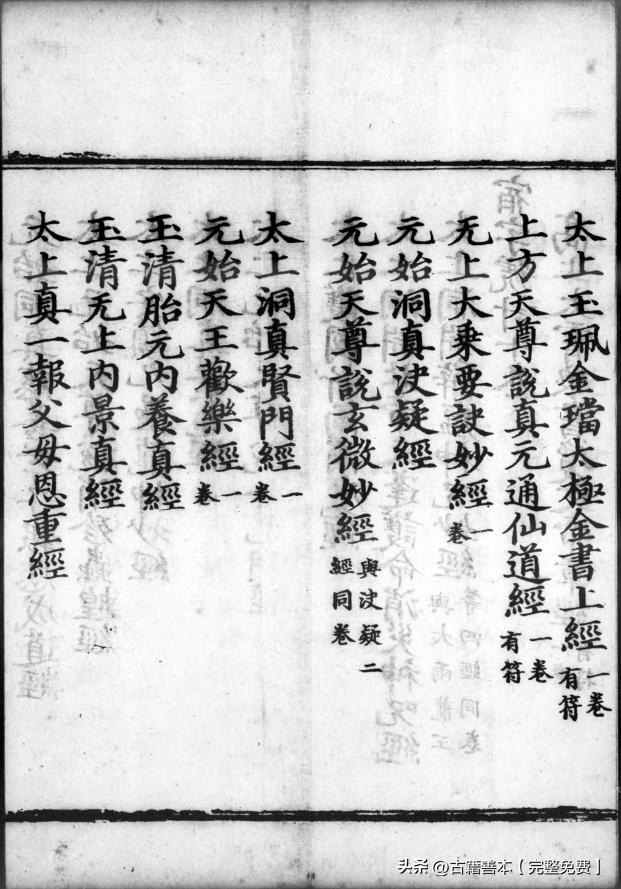 太上玉珮金璫太極金書上經一卷有符
上方天尊說真元通仙道經一卷有符
无上大乘要訣妙經一卷
元始洞真決疑經
元始天尊說玄微妙經與決疑二經同卷
太上洞真賢門經一卷
元始天王歡樂經一卷
玉清胎元內養真經
玉清无上內景真經
太上真一報父母恩重經
头条 @古籍善本【完整免费】